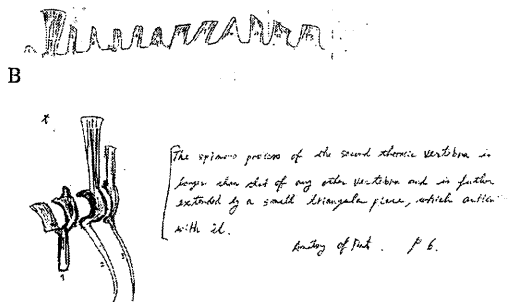 B
The spinous process of the second thoracic vertebra is
longer than that of any other vertebra and is further
extended by a small triangular piece, which
with it.
Anatomy of P 6.
1